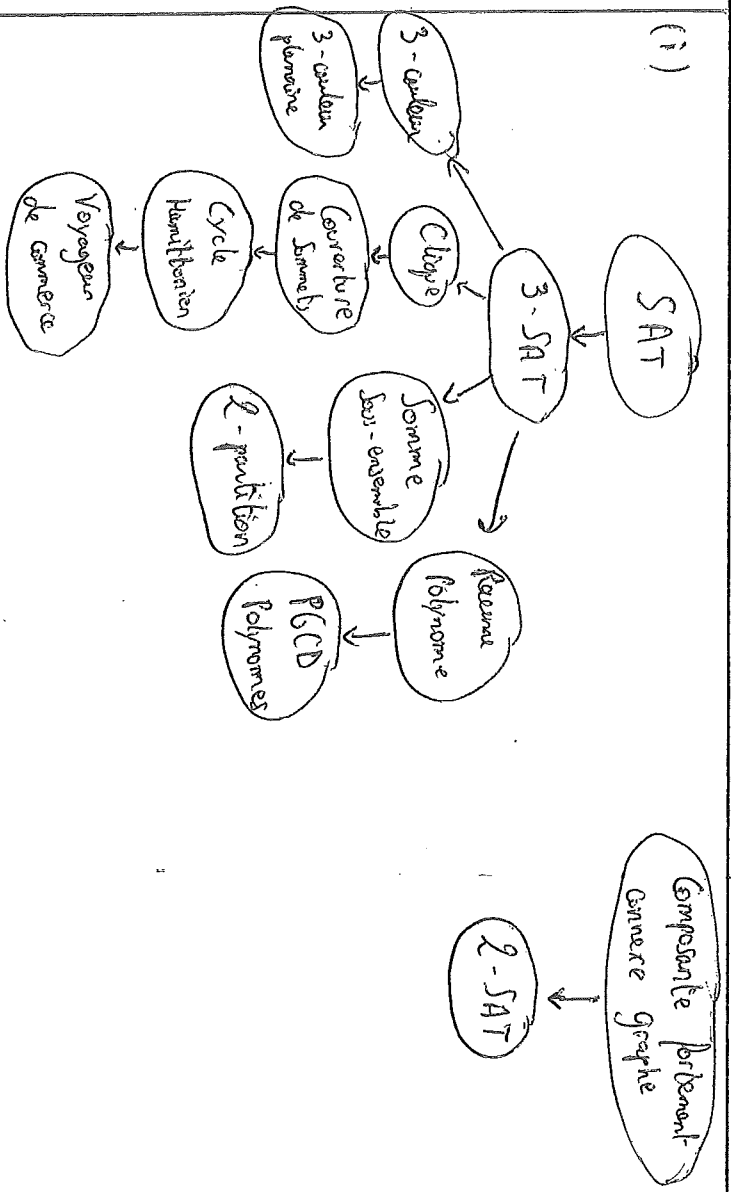 (i)
SAT
3-SAT
3-couleur
3-couleur
planaire
Clique
Couverture
de Sommets
Cycle
Hamiltonien
Voyageur
de Commerce
Somme
Sous-ensemble
2-partition
Racine
Polynome
PGCD
Polynomes
Composante fortement-
connexe graphe
2-SAT